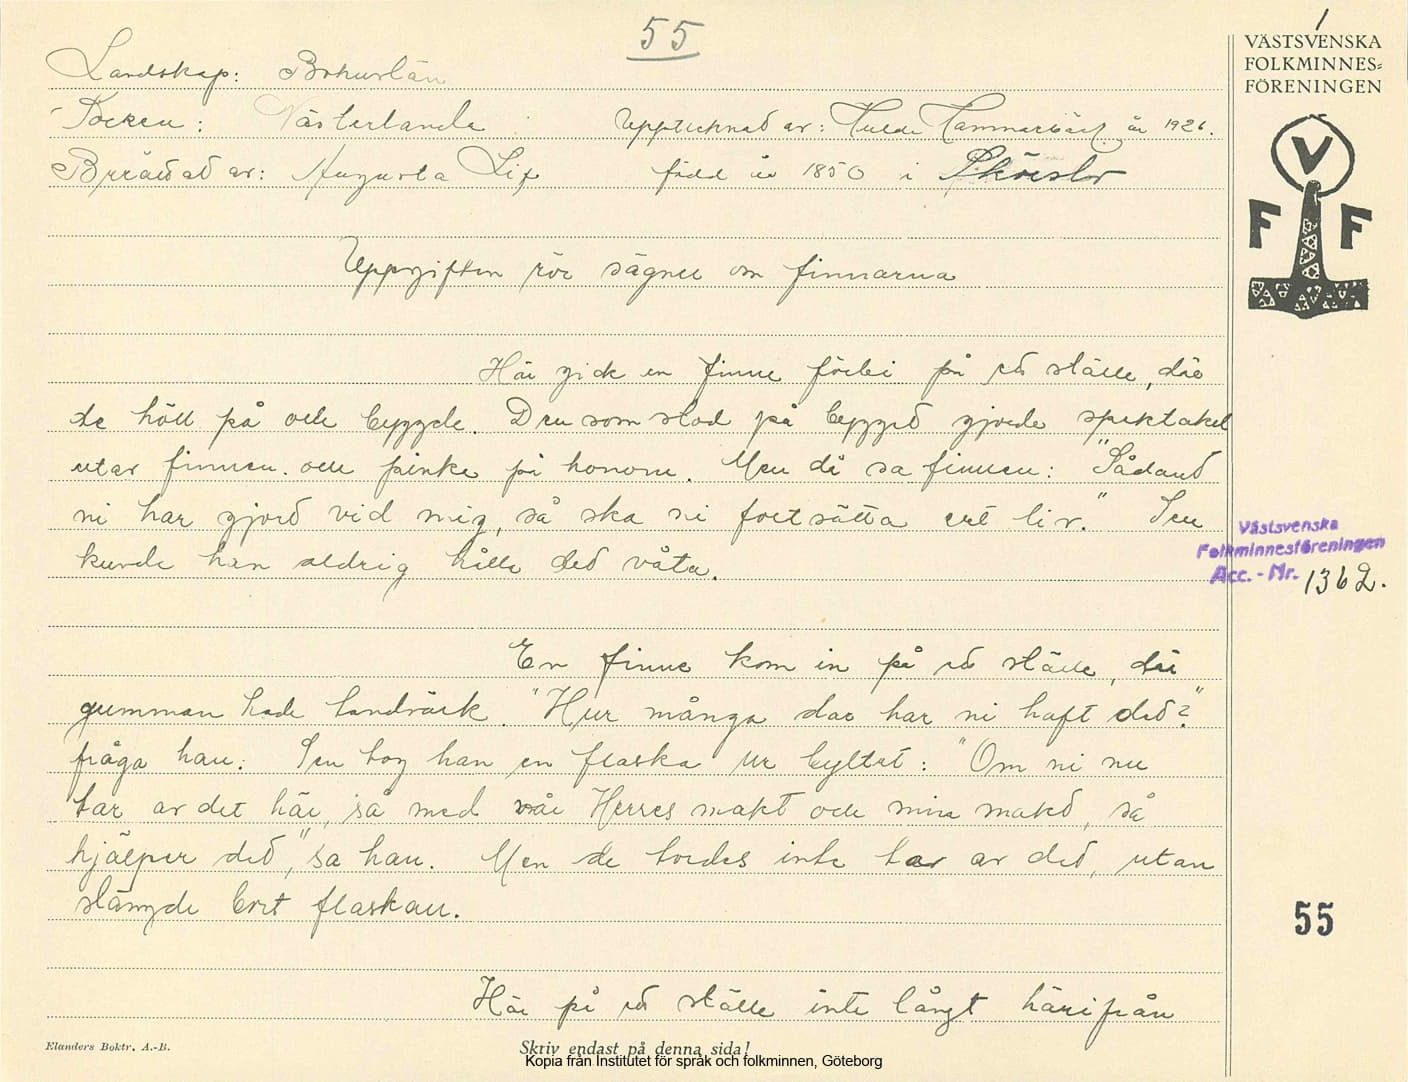 55
1
VÄSTSVENSKA
FOLKMINNES-
FÖRENINGEN
V
F F
Landskap: Bohuslän
Socken: Västerlanda Upptecknad av: Hulda Hammarbäck år 1926.
Berättad av: Augusta Lix född år 1850 i
Uppgiften rör sägner om finnarna
Här gick en finne förbi på ed ställe, där
de höll på och byggde. Den som stod på bygged gjorde spektakel
utav finnen och pinke på honom. Men då sa finnen: "Sådand
ni har gjord vid mig, så ska ni fortsätta ert liv." Sen
kunde han aldrig hålle ded våta.
Västsvenska
Folkminnesföreningen
Acc. - Nr. 1362.
En finne kom in på ed ställe, där
gumman hade tandvärk. "Hur många dar har ni haft ded?"
fråga han. Sen tog han en flaska ur byltet: "Om ni nu
tar av det här, så med vår Herres makt och min makd, så
hjälper ded," sa han. Men de tordes inte tar av ded, utan
slängde bort flaskan.
55
Här på ed ställe inte långt härifrån
Elanders Boktr. A.-B.
Skriv endast på denna sida!
Kopia från Institutet för språk och folkminnen, Göteborg